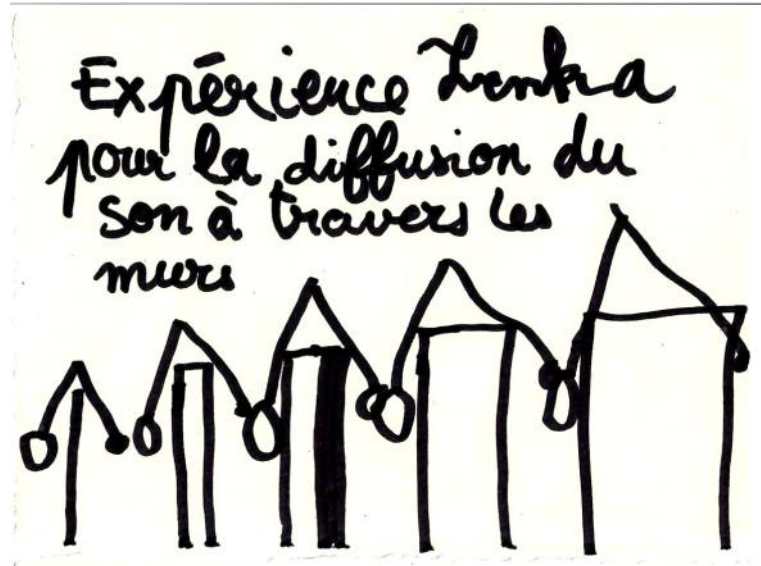 Expérience Lenka
pour la diffusion du
son à travers les
murs